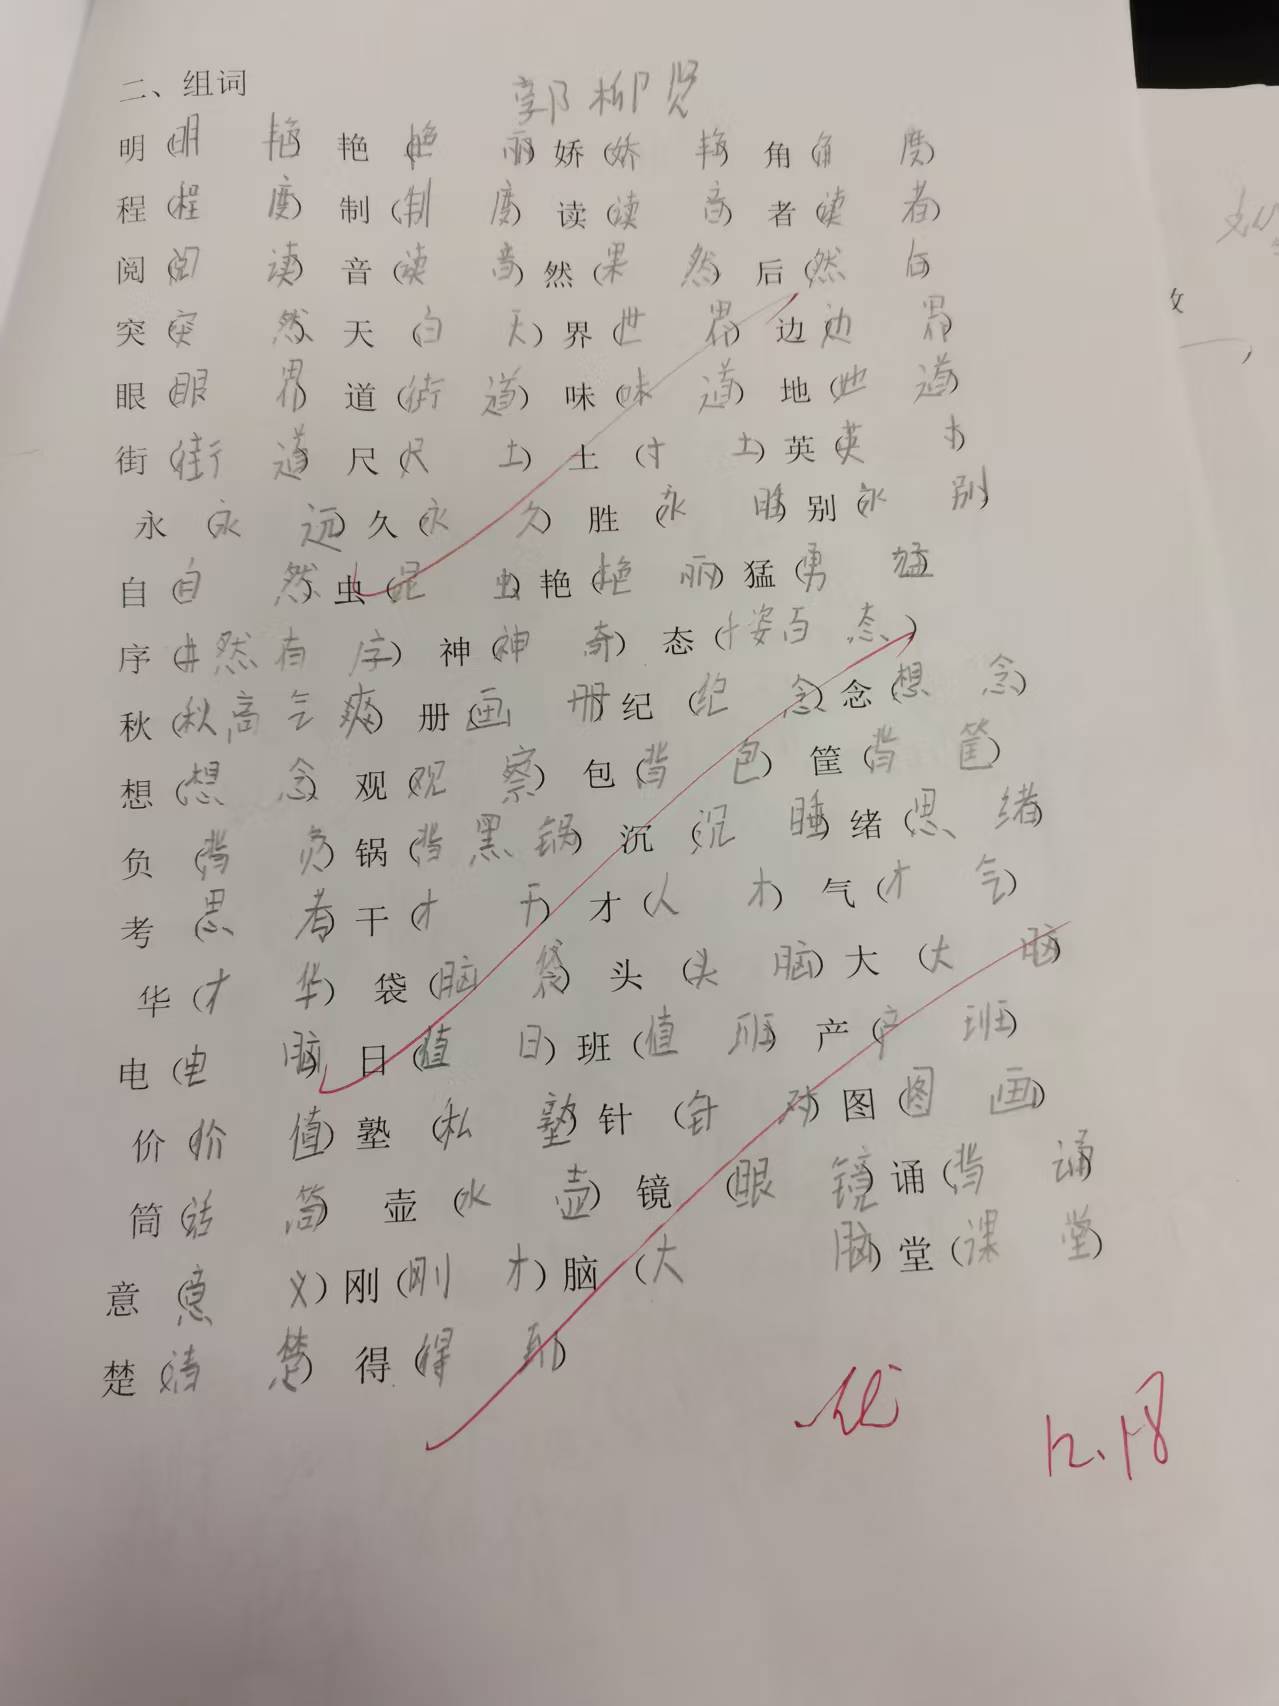 二、组词 郭柳贤
明（明艳）艳（艳丽）娇（娇艳）角（角度）
程（程度）制（制度）读（读音）者（读者）
阅（阅读）音（读音）然（果然）后（然后）
突（突然）天（白天）界（世界）边（边界）
眼（眼界）道（街道）味（味道）地（地道）
街（街道）尺（尺土）土（寸土）英（英才）
永（永远）久（永久）胜（永胜）别（永别）
自（自然）虫（昆虫）艳（艳丽）猛（勇猛）
序（井然有序）神（神奇）态（千姿百态）
秋（秋高气爽）册（画册）纪（纪念）念（想念）
想（想念）观（观察）包（背包）筐（背筐）
负（背负）锅（背黑锅）沉（沉睡）绪（思绪）
考（思考）干（才干）才（人才）气（才气）
华（才华）袋（脑袋）头（头脑）大（大脑）
电（电脑）日（值日）班（值班）产（产班）
价（价值）塾（私塾）针（针对）图（图画）
筒（话筒）壶（水壶）镜（眼镜）诵（背诵）
意（意义）刚（刚才）脑（大脑）堂（课堂）
楚（清楚）得（得到）
优 12.18